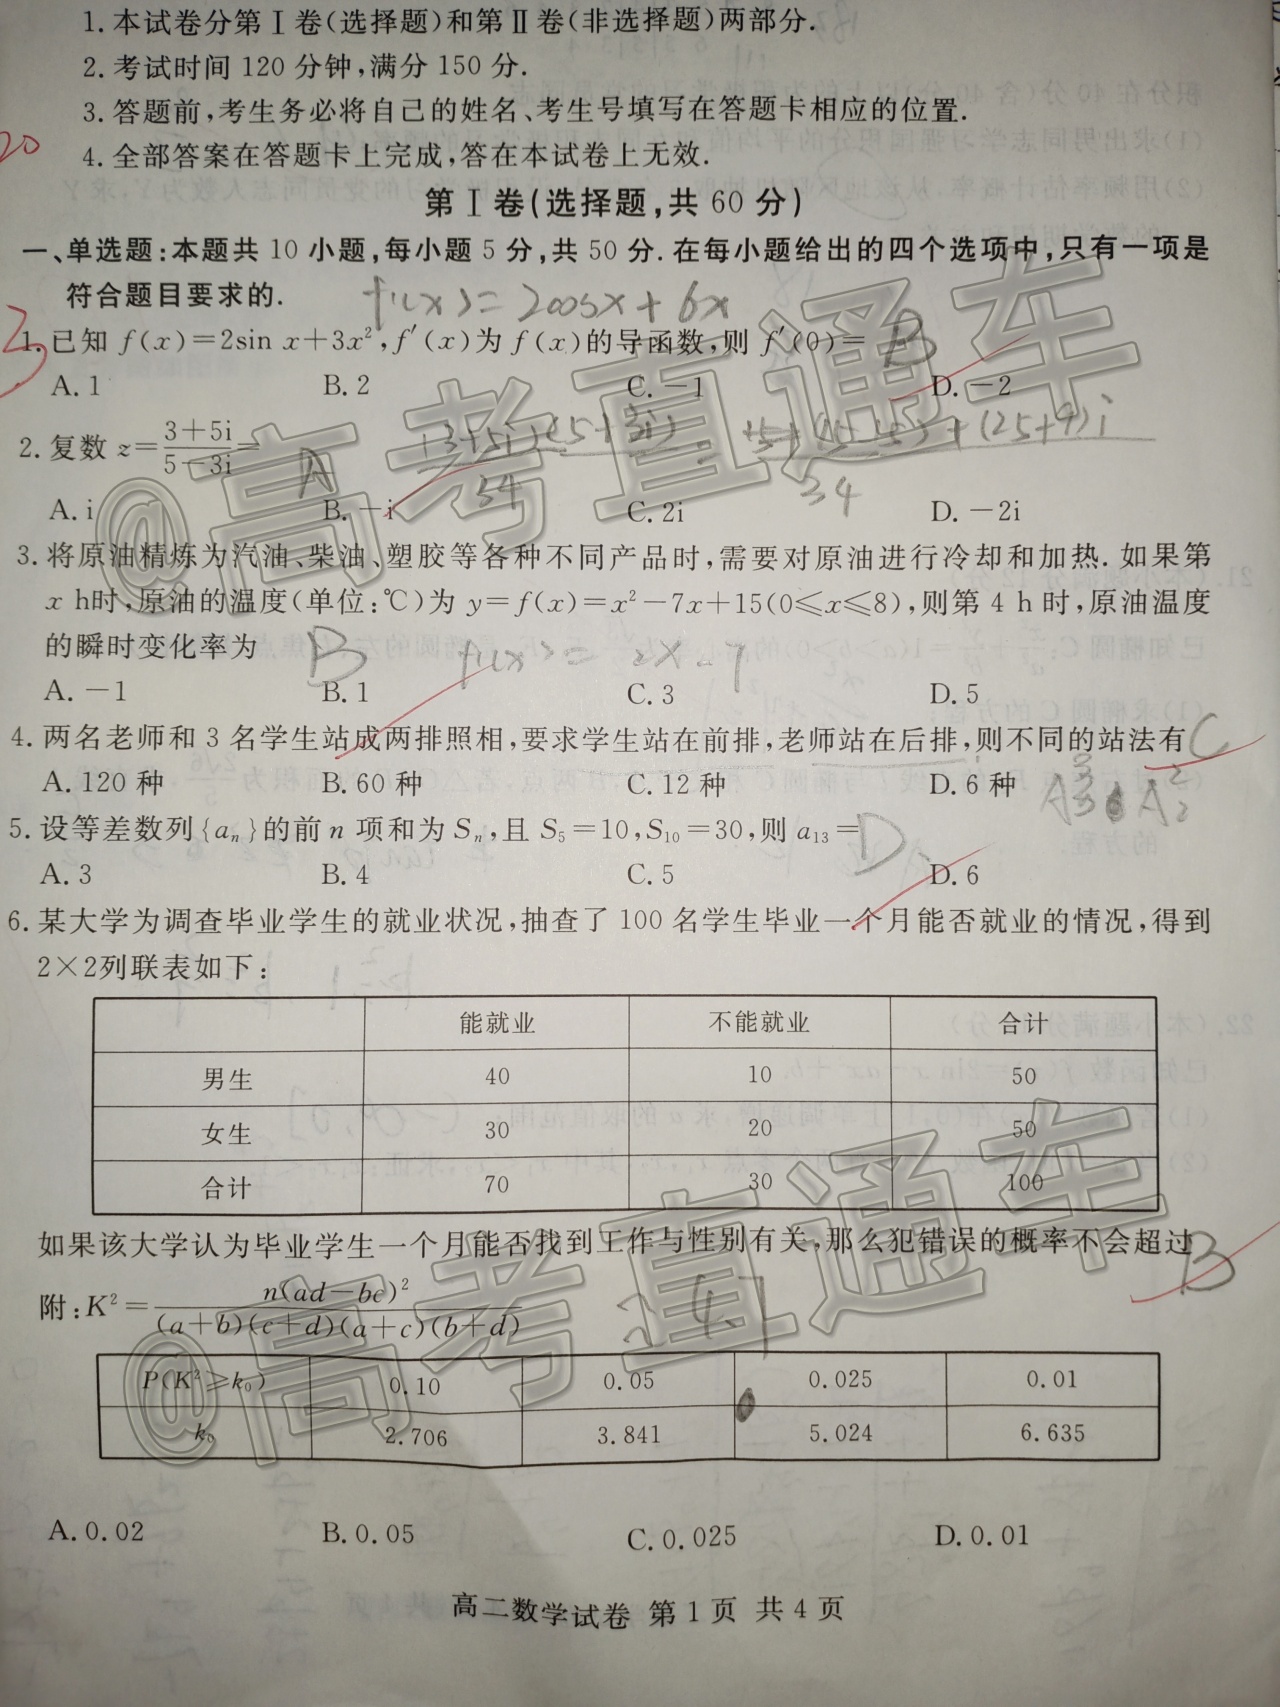 1.本试卷分第Ⅰ卷(选择题)和第Ⅱ卷(非选择题)两部分.
2.考试时间120分钟,满分150分.
3.答题前,考生务必将自己的姓名、考生号填写在答题卡相应的位置.
20
4.全部答案在答题卡上完成,答在本试卷上无效.
第Ⅰ卷(选择题,共60分)
一、单选题:本题共10小题,每小题5分,共50分.在每小题给出的四个选项中,只有一项是
符合题目要求的. f'(x)=2cosx+6x
1.已知f(x)=2sin x+3x²,f′(x)为f(x)的导函数,则f′(0)= B
A.1 B.2 C.-1 D.-2
2.复数z=(3+5i)/(5-3i)= A
A.i B.-i C.2i D.-2i
3.将原油精炼为汽油、柴油、塑胶等各种不同产品时,需要对原油进行冷却和加热.如果第
x h时,原油的温度(单位:℃)为y=f(x)=x²-7x+15(0≤x≤8),则第4 h时,原油温度
的瞬时变化率为 B f'(x)=2x-7
A.-1 B.1 C.3 D.5
4.两名老师和3名学生站成两排照相,要求学生站在前排,老师站在后排,则不同的站法有 C
A.120种 B.60种 C.12种 D.6种
5.设等差数列{aₙ}的前n项和为Sₙ,且S₅=10,S₁₀=30,则a₁₃= D
A.3 B.4 C.5 D.6
6.某大学为调查毕业学生的就业状况,抽查了100名学生毕业一个月能否就业的情况,得到
2×2列联表如下:
能就业 不能就业 合计
男生 40 10 50
女生 30 20 50
合计 70 30 100
如果该大学认为毕业学生一个月能否找到工作与性别有关,那么犯错误的概率不会超过 B
附:K²=n(ad-bc)²/(a+b)(c+d)(a+c)(b+d)
P(K²≥k₀) 0.10 0.05 0.025 0.01
k₀ 2.706 3.841 5.024 6.635
A.0.02 B.0.05 C.0.025 D.0.01
高二数学试卷 第1页 共4页
@高考直通车
@高考直通车